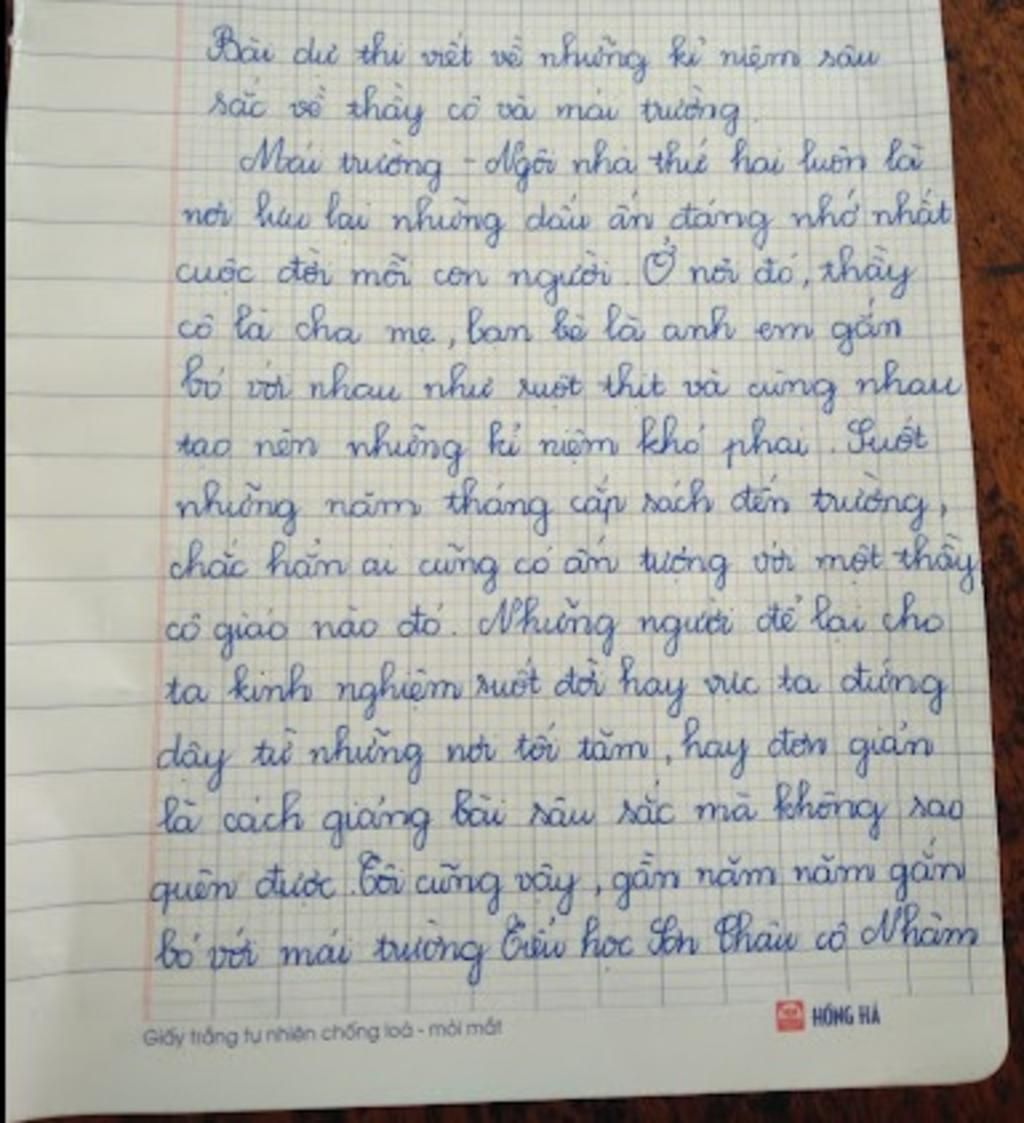 Bài dự thi viết về những kỉ niệm sâu
sắc về thầy cô và mái trường.
Mái trường - Ngôi nhà thứ hai luôn là
nơi lưu lại những dấu ấn đáng nhớ nhất
cuộc đời mỗi con người. Ở nơi đó, thầy
cô là cha mẹ, bạn bè là anh em gắn
bó với nhau như ruột thịt và cùng nhau
tạo nên những kỉ niệm khó phai. Suốt
những năm tháng cắp sách đến trường,
chắc hẳn ai cũng có ấn tượng với một thầy
cô giáo nào đó. Những người để lại cho
ta kinh nghiệm suốt đời hay vực ta đứng
dậy từ những nơi tối tăm, hay đơn giản
là cách giảng bài sâu sắc mà không sao
quên được. Tôi cũng vậy, gần năm năm gắn
bó với mái trường Tiểu học Sơn Châu cô Nhâm
Giấy trắng tự nhiên chống loá - mỏi mắt
HỒNG HÀ